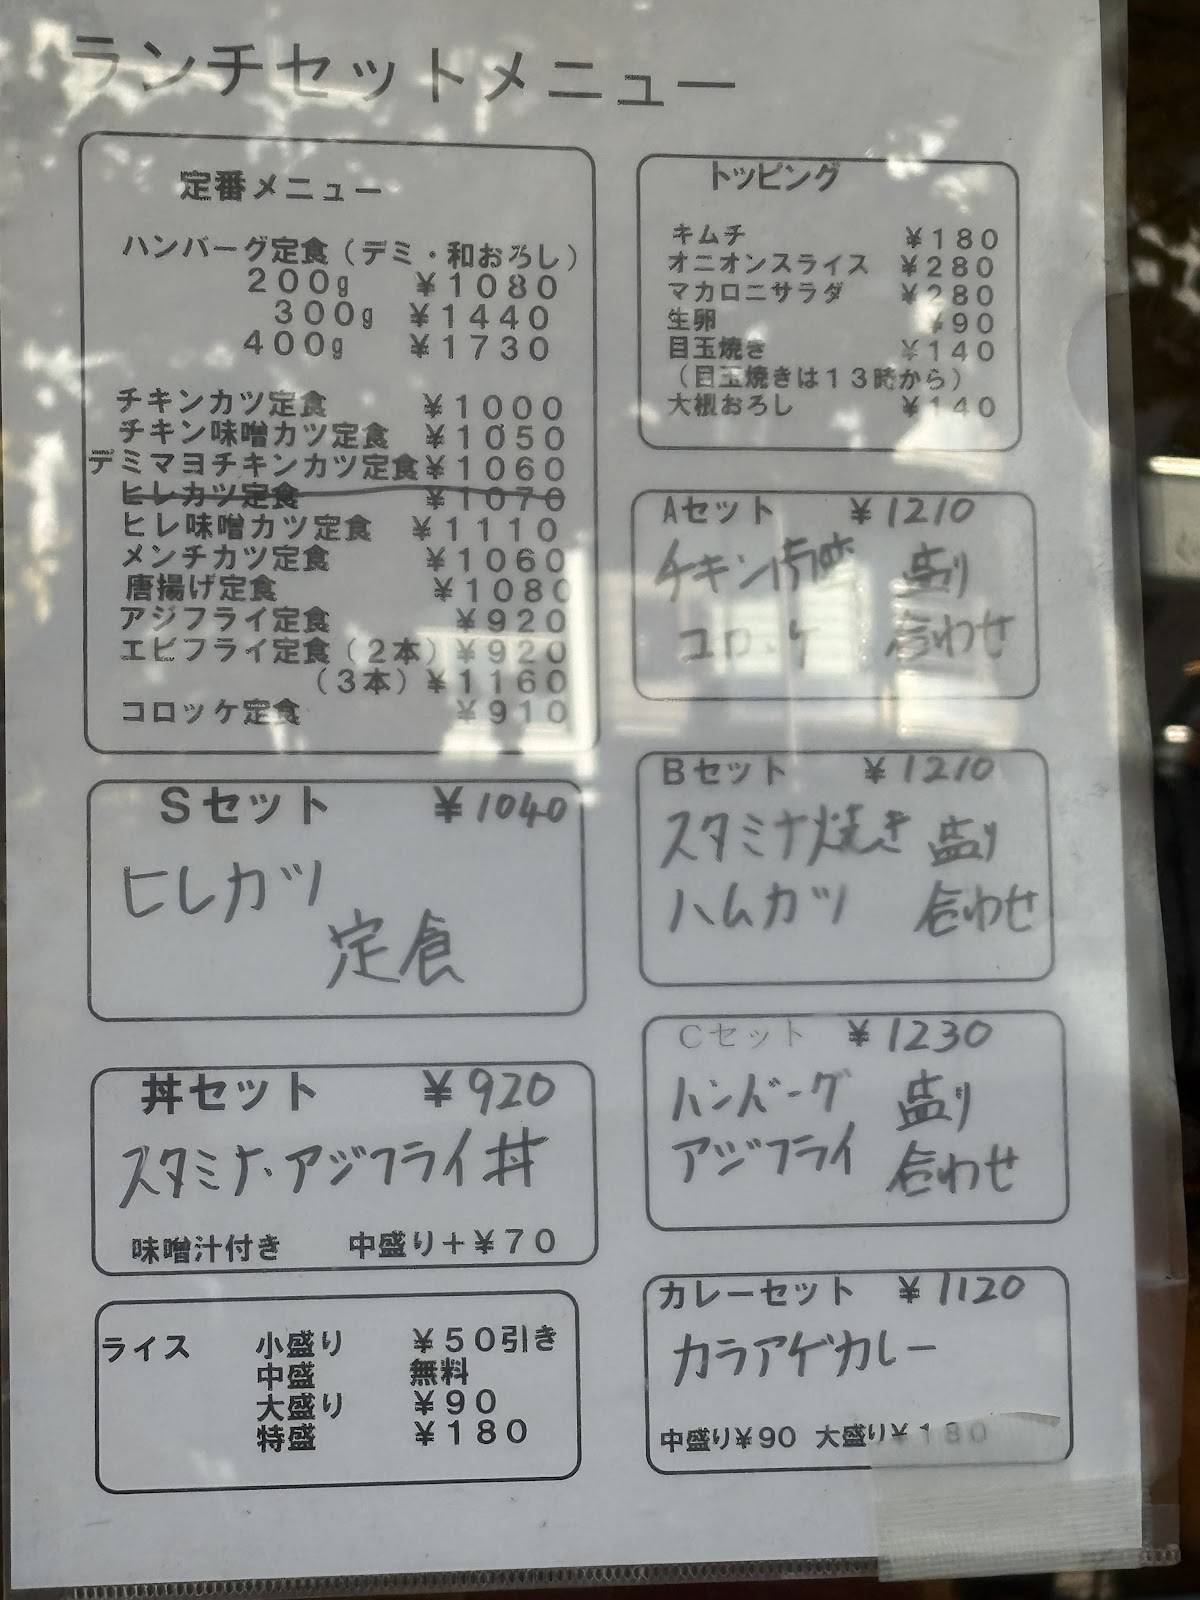 ランチセットメニュー
定番メニュー
ハンバーグ定食（デミ・和おろし）
200g ¥1080
300g ¥1440
400g ¥1730
チキンカツ定食 ¥1000
チキン味噌カツ定食 ¥1050
デミマヨチキンカツ定食¥1060
ヒレカツ定食 ¥1070
ヒレ味噌カツ定食 ¥1110
メンチカツ定食 ¥1060
唐揚げ定食 ¥1080
アジフライ定食 ¥920
エビフライ定食（2本）¥920
（3本）¥1160
コロッケ定食 ¥910
Sセット ¥1040
ヒレカツ
定食
丼セット ¥920
スタミナ・アジフライ丼
味噌汁付き 中盛り＋¥70
ライス 小盛り ¥50引き
中盛 無料
大盛り ¥90
特盛 ¥180
トッピング
キムチ ¥180
オニオンスライス ¥280
マカロニサラダ ¥280
生卵 ¥90
目玉焼き ¥140
（目玉焼きは13時から）
大根おろし ¥140
Aセット ¥1210
チキン 盛り
コロッケ 合わせ
Bセット ¥1210
スタミナ焼き 盛り
ハムカツ 合わせ
Cセット ¥1230
ハンバーグ 盛り
アジフライ 合わせ
カレーセット ¥1120
カラアゲカレー
中盛り¥90 大盛り¥180